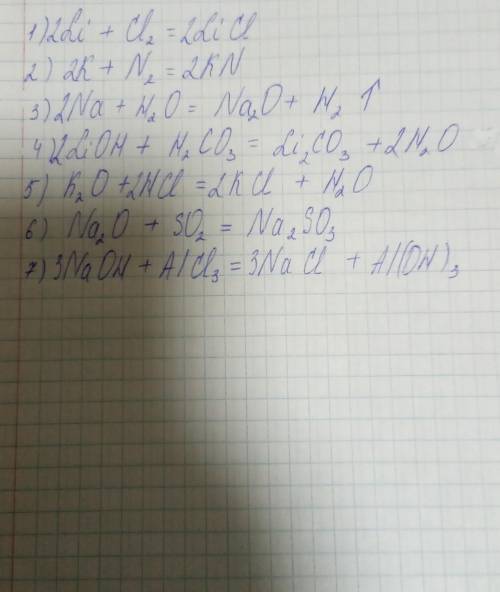 1) 2Li + Cl₂ = 2LiCl
2) 2K + N₂ = 2KN
3) 2Na + H₂O = Na₂O + H₂ ↑
4) 2LiOH + H₂CO₃ = Li₂CO₃ + 2H₂O
5) K₂O + 2HCl = 2KCl + H₂O
6) Na₂O + SO₂ = Na₂SO₃
7) 3NaOH + AlCl₃ = 3NaCl + Al(OH)₃